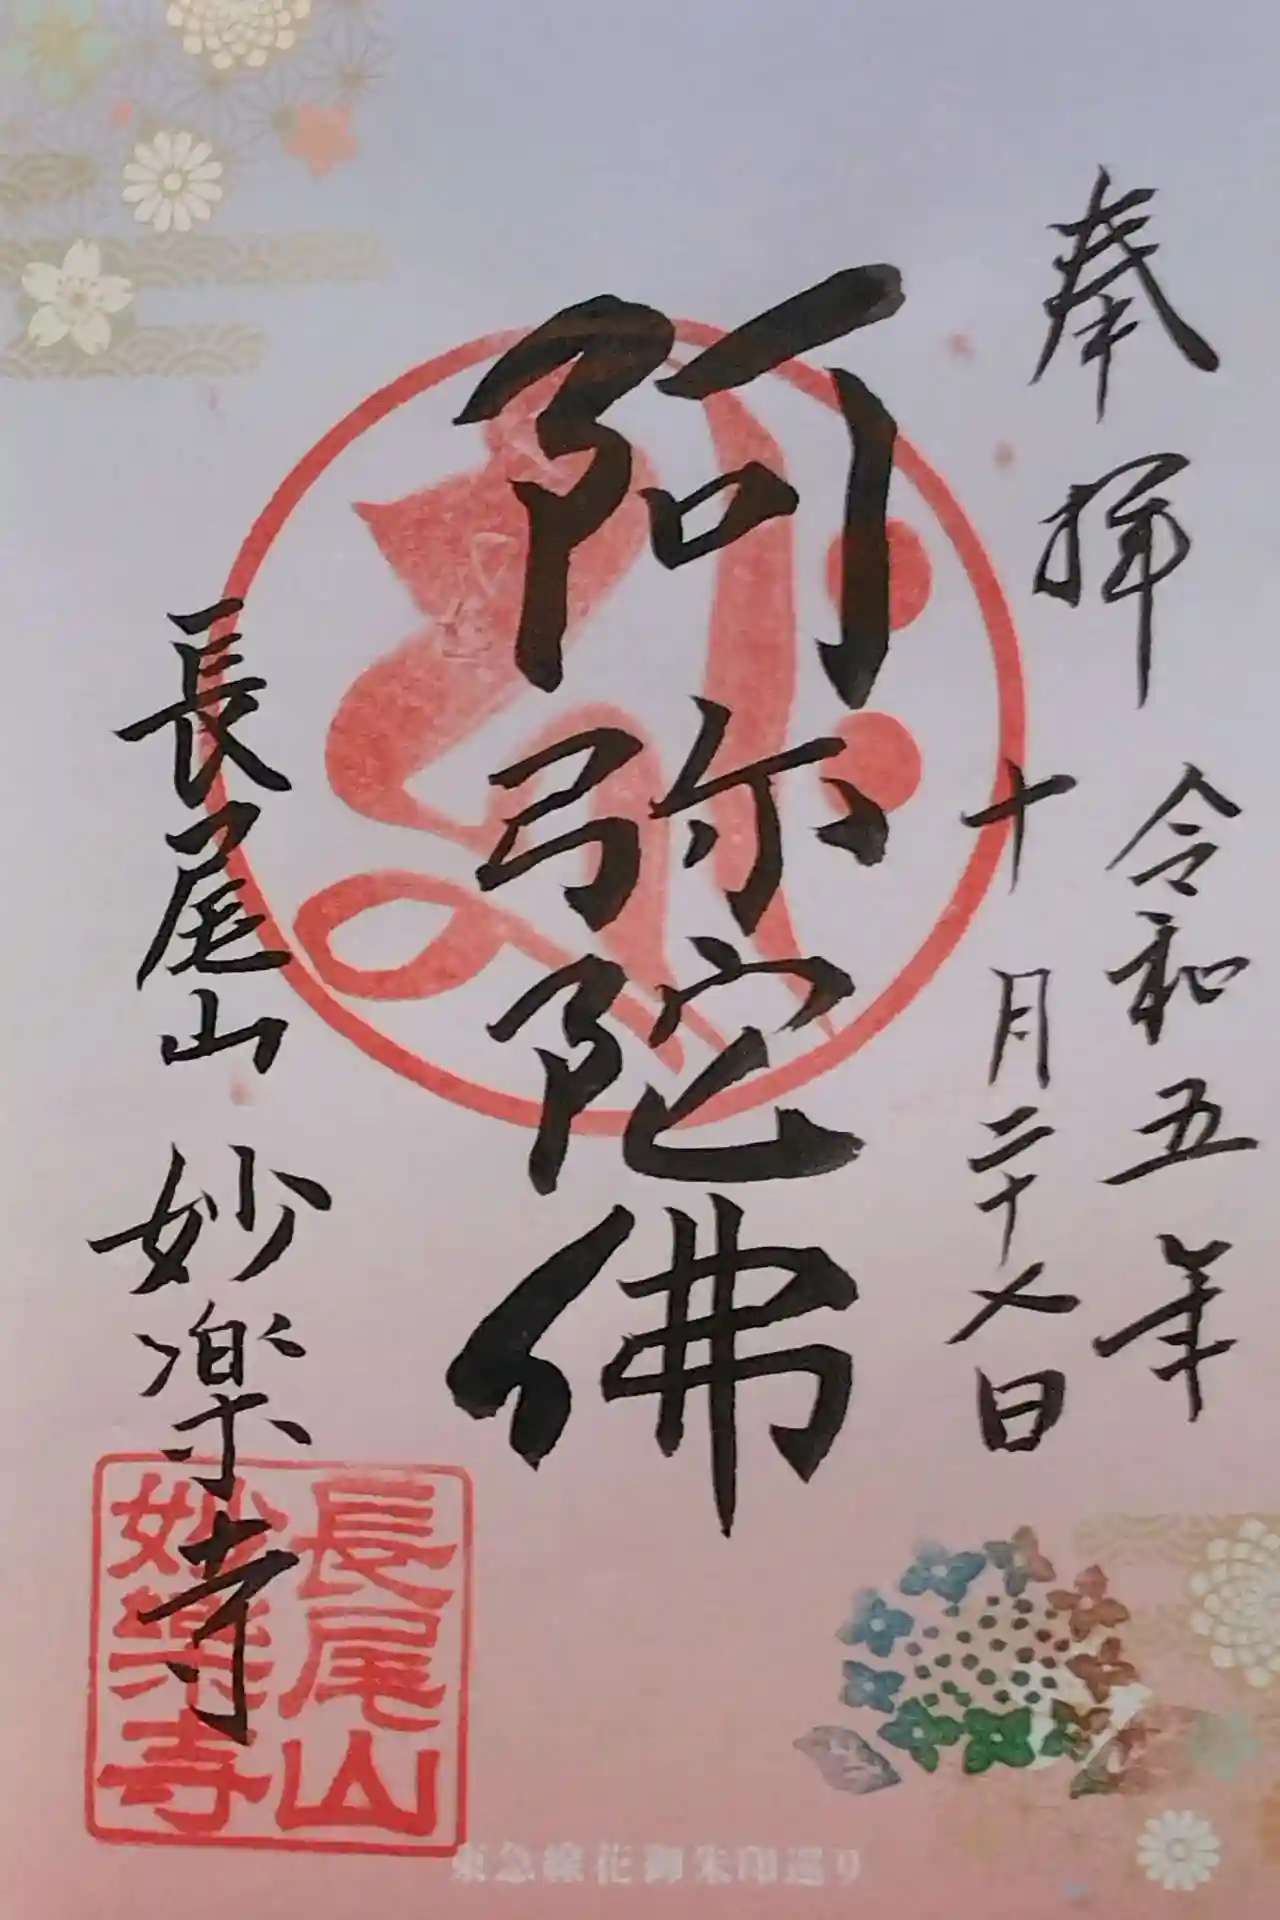 奉拝
令和五年
十月二十七日
阿弥陀佛
長尾山 妙楽寺
長尾山
妙樂寺
東急線花御朱印巡り